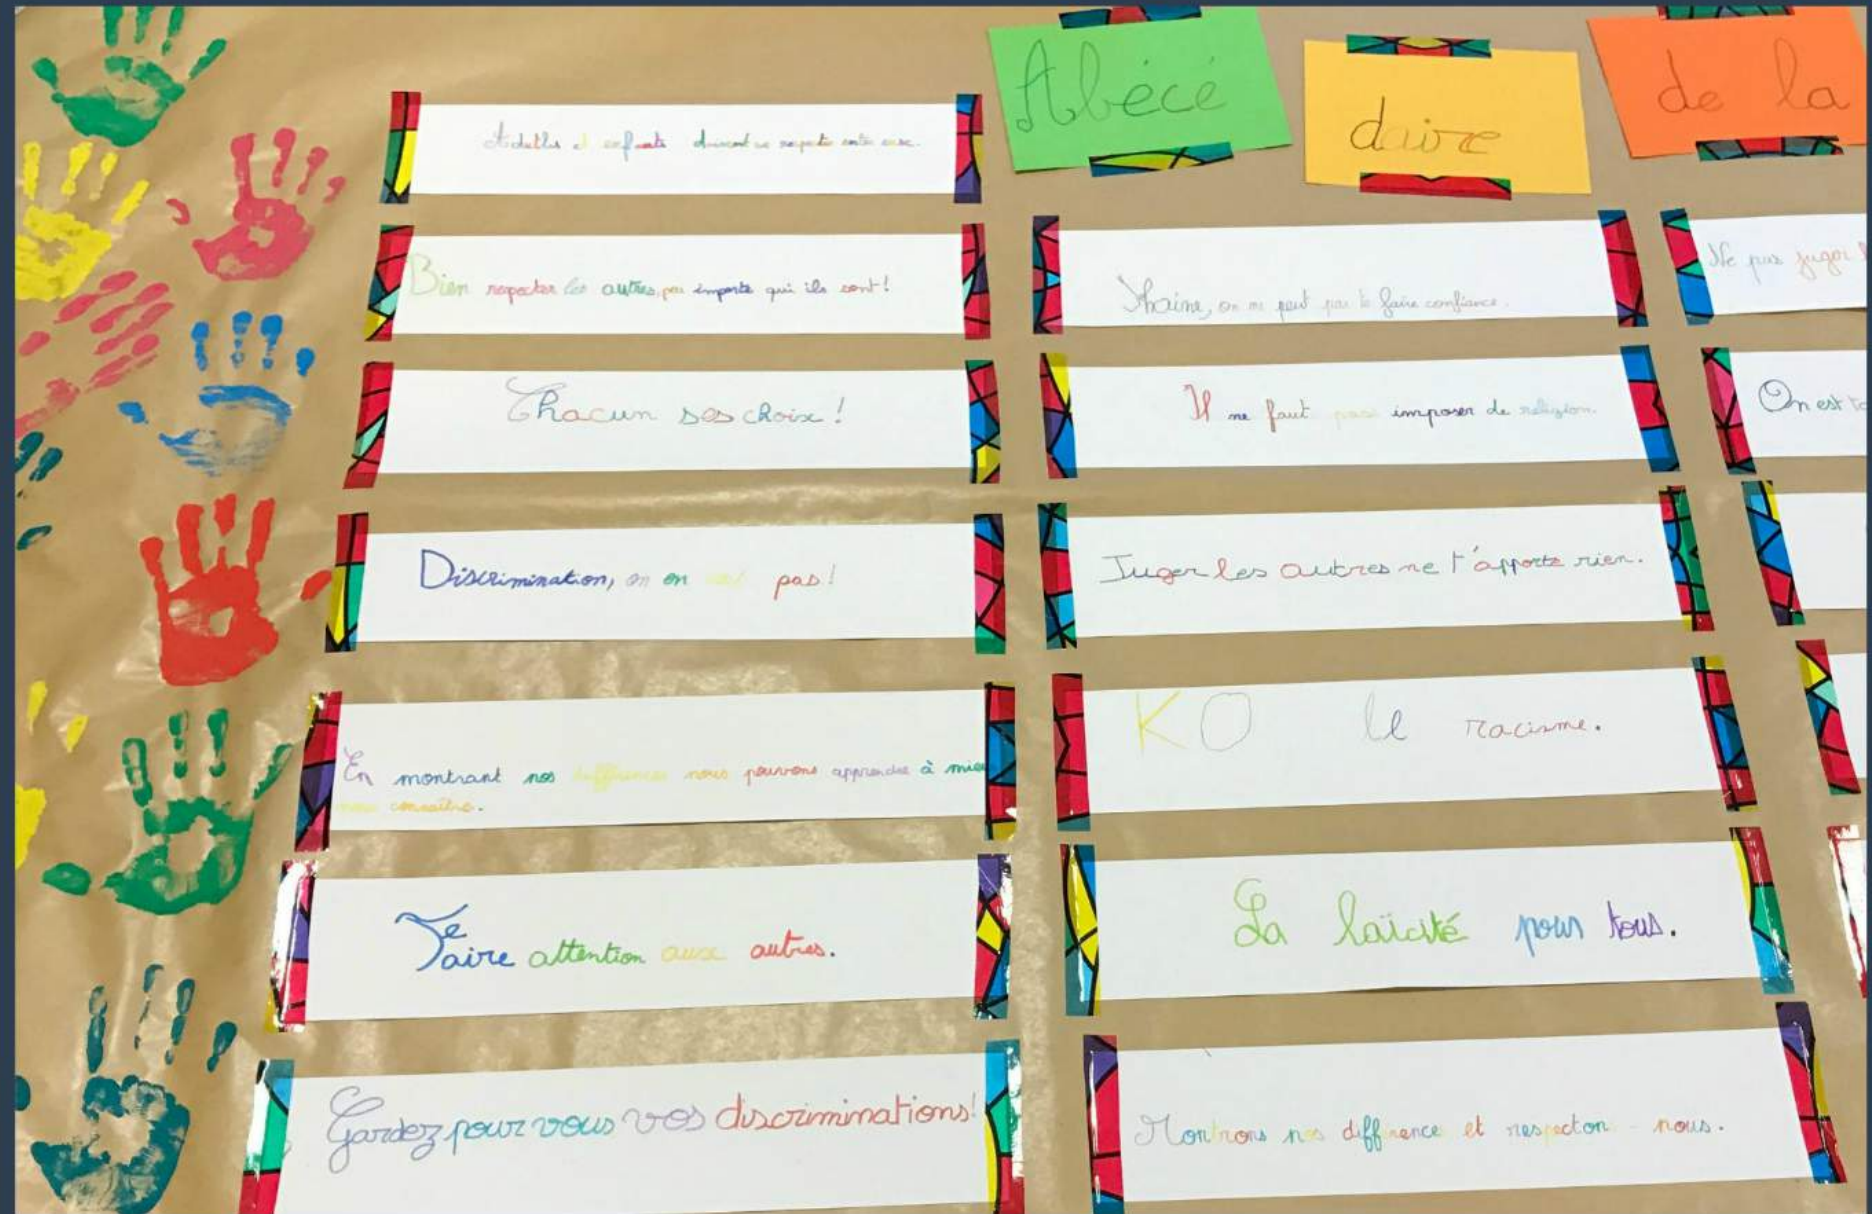 Abécé
daire
de la
Adultes et enfants doivent se respecter entre eux.
Bien respecter les autres, peu importe qui ils sont!
Chacun ses choix!
Discrimination, on en pas!
En montrant nos différences nous pouvons apprendre à mieu
nous connaître.
Faire attention aux autres.
Gardez pour vous vos discriminations!
haine, on ne peut pas te faire confiance.
Il ne faut pas imposer de religion.
Juger les autres ne t'apporte rien.
KO le racisme.
La laïcité pour tous.
Montrons nos différence et respecton-nous.
Ne pas juger
On est